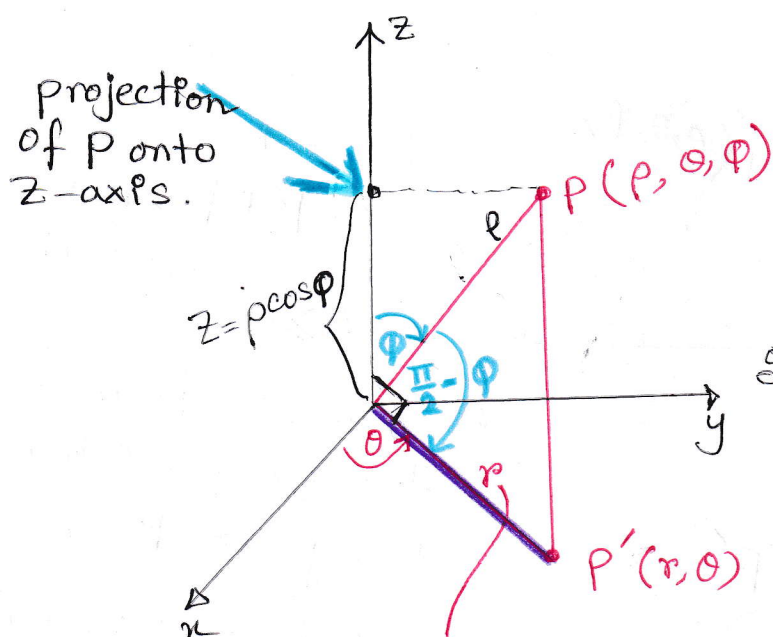 z
projection
of P onto
z-axis.
P(ρ, θ, φ)
ρ
z=ρcosφ
φ
π/2 - φ
y
θ
r
P′(r,θ)
x